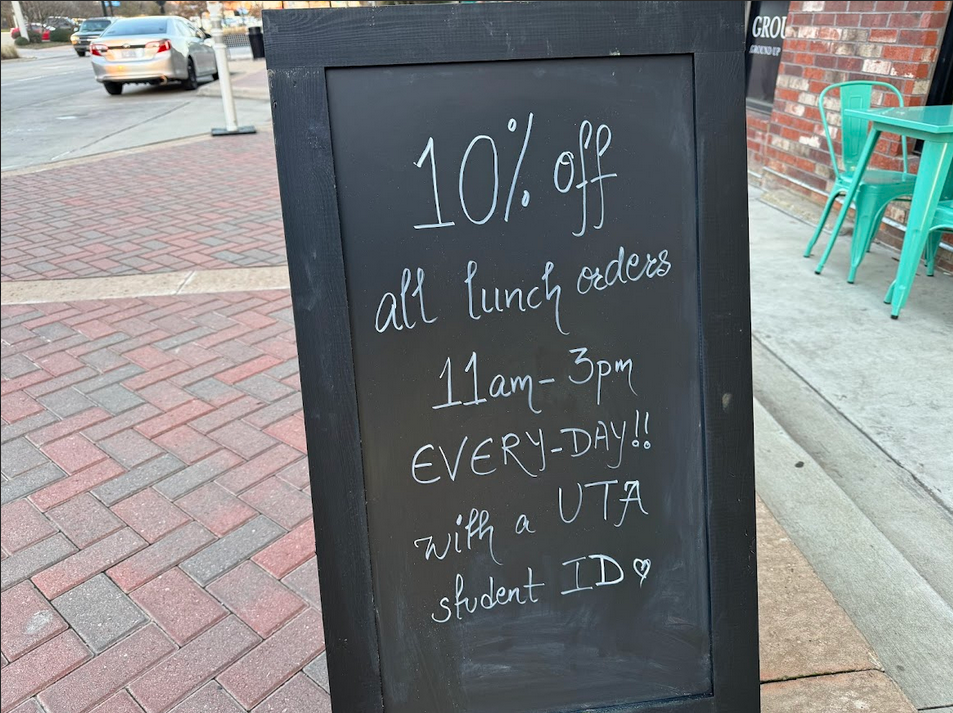 10% off
all lunch orders
11am-3pm
EVERY-DAY!!
with a UTA
student ID ♡
GROU
GROUND UP